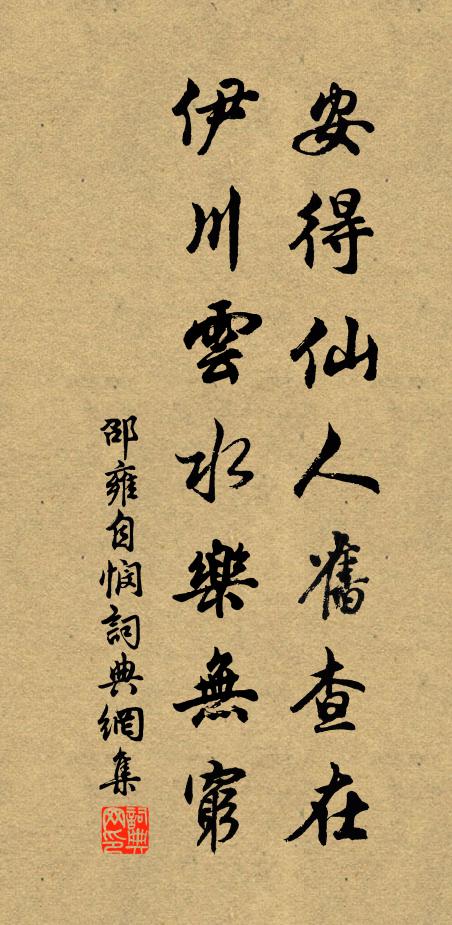 安得仙人舊查在
伊川雲水樂無窮
邵雍自憫詞典網集
詞典網印